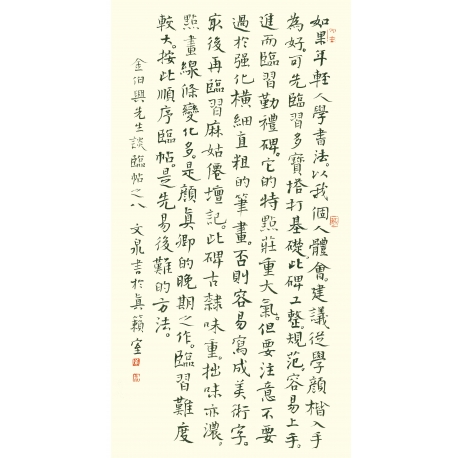 如果年輕人學書法。以我個人體會。建議從學顏楷入手
為好。可先臨習多寶塔打基礎。此碑工整。規范。容易上手。
進而臨習勤禮碑。它的特點莊重大氣。但要注意不要
過於强化橫細直粗的筆畫。否則容易寫成美術字。
最後再臨習麻姑僊壇記。此碑古隸味重。拙味亦濃。
點畫線條變化多。是顏真卿的晚期之作。臨習難度
較大。按此順序臨帖。是先易後難的方法。
金伯興先生談臨帖之八 文泉書於真籟室